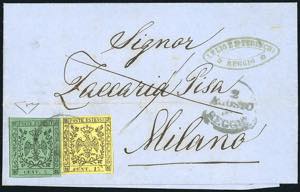 Signor
REGGIO
Zaccaria Pisa
2
REGGIO
Milano
POSTE ESTENSI
CENT. 5
POSTE ESTENSI
CENT. 15